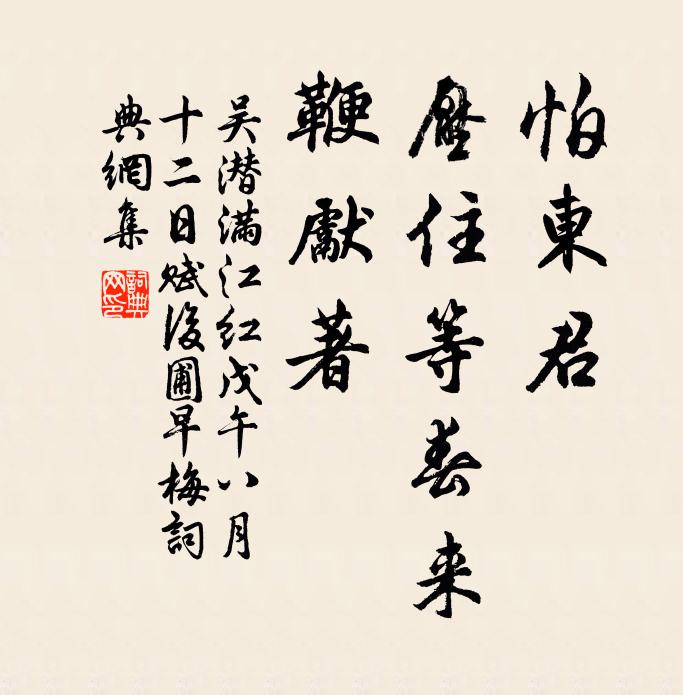 怕東君
壓住等春来
鞭獻著
吴潜满江红戊午八月
十二日赋後圃早梅詞
典網集
詞典
网印